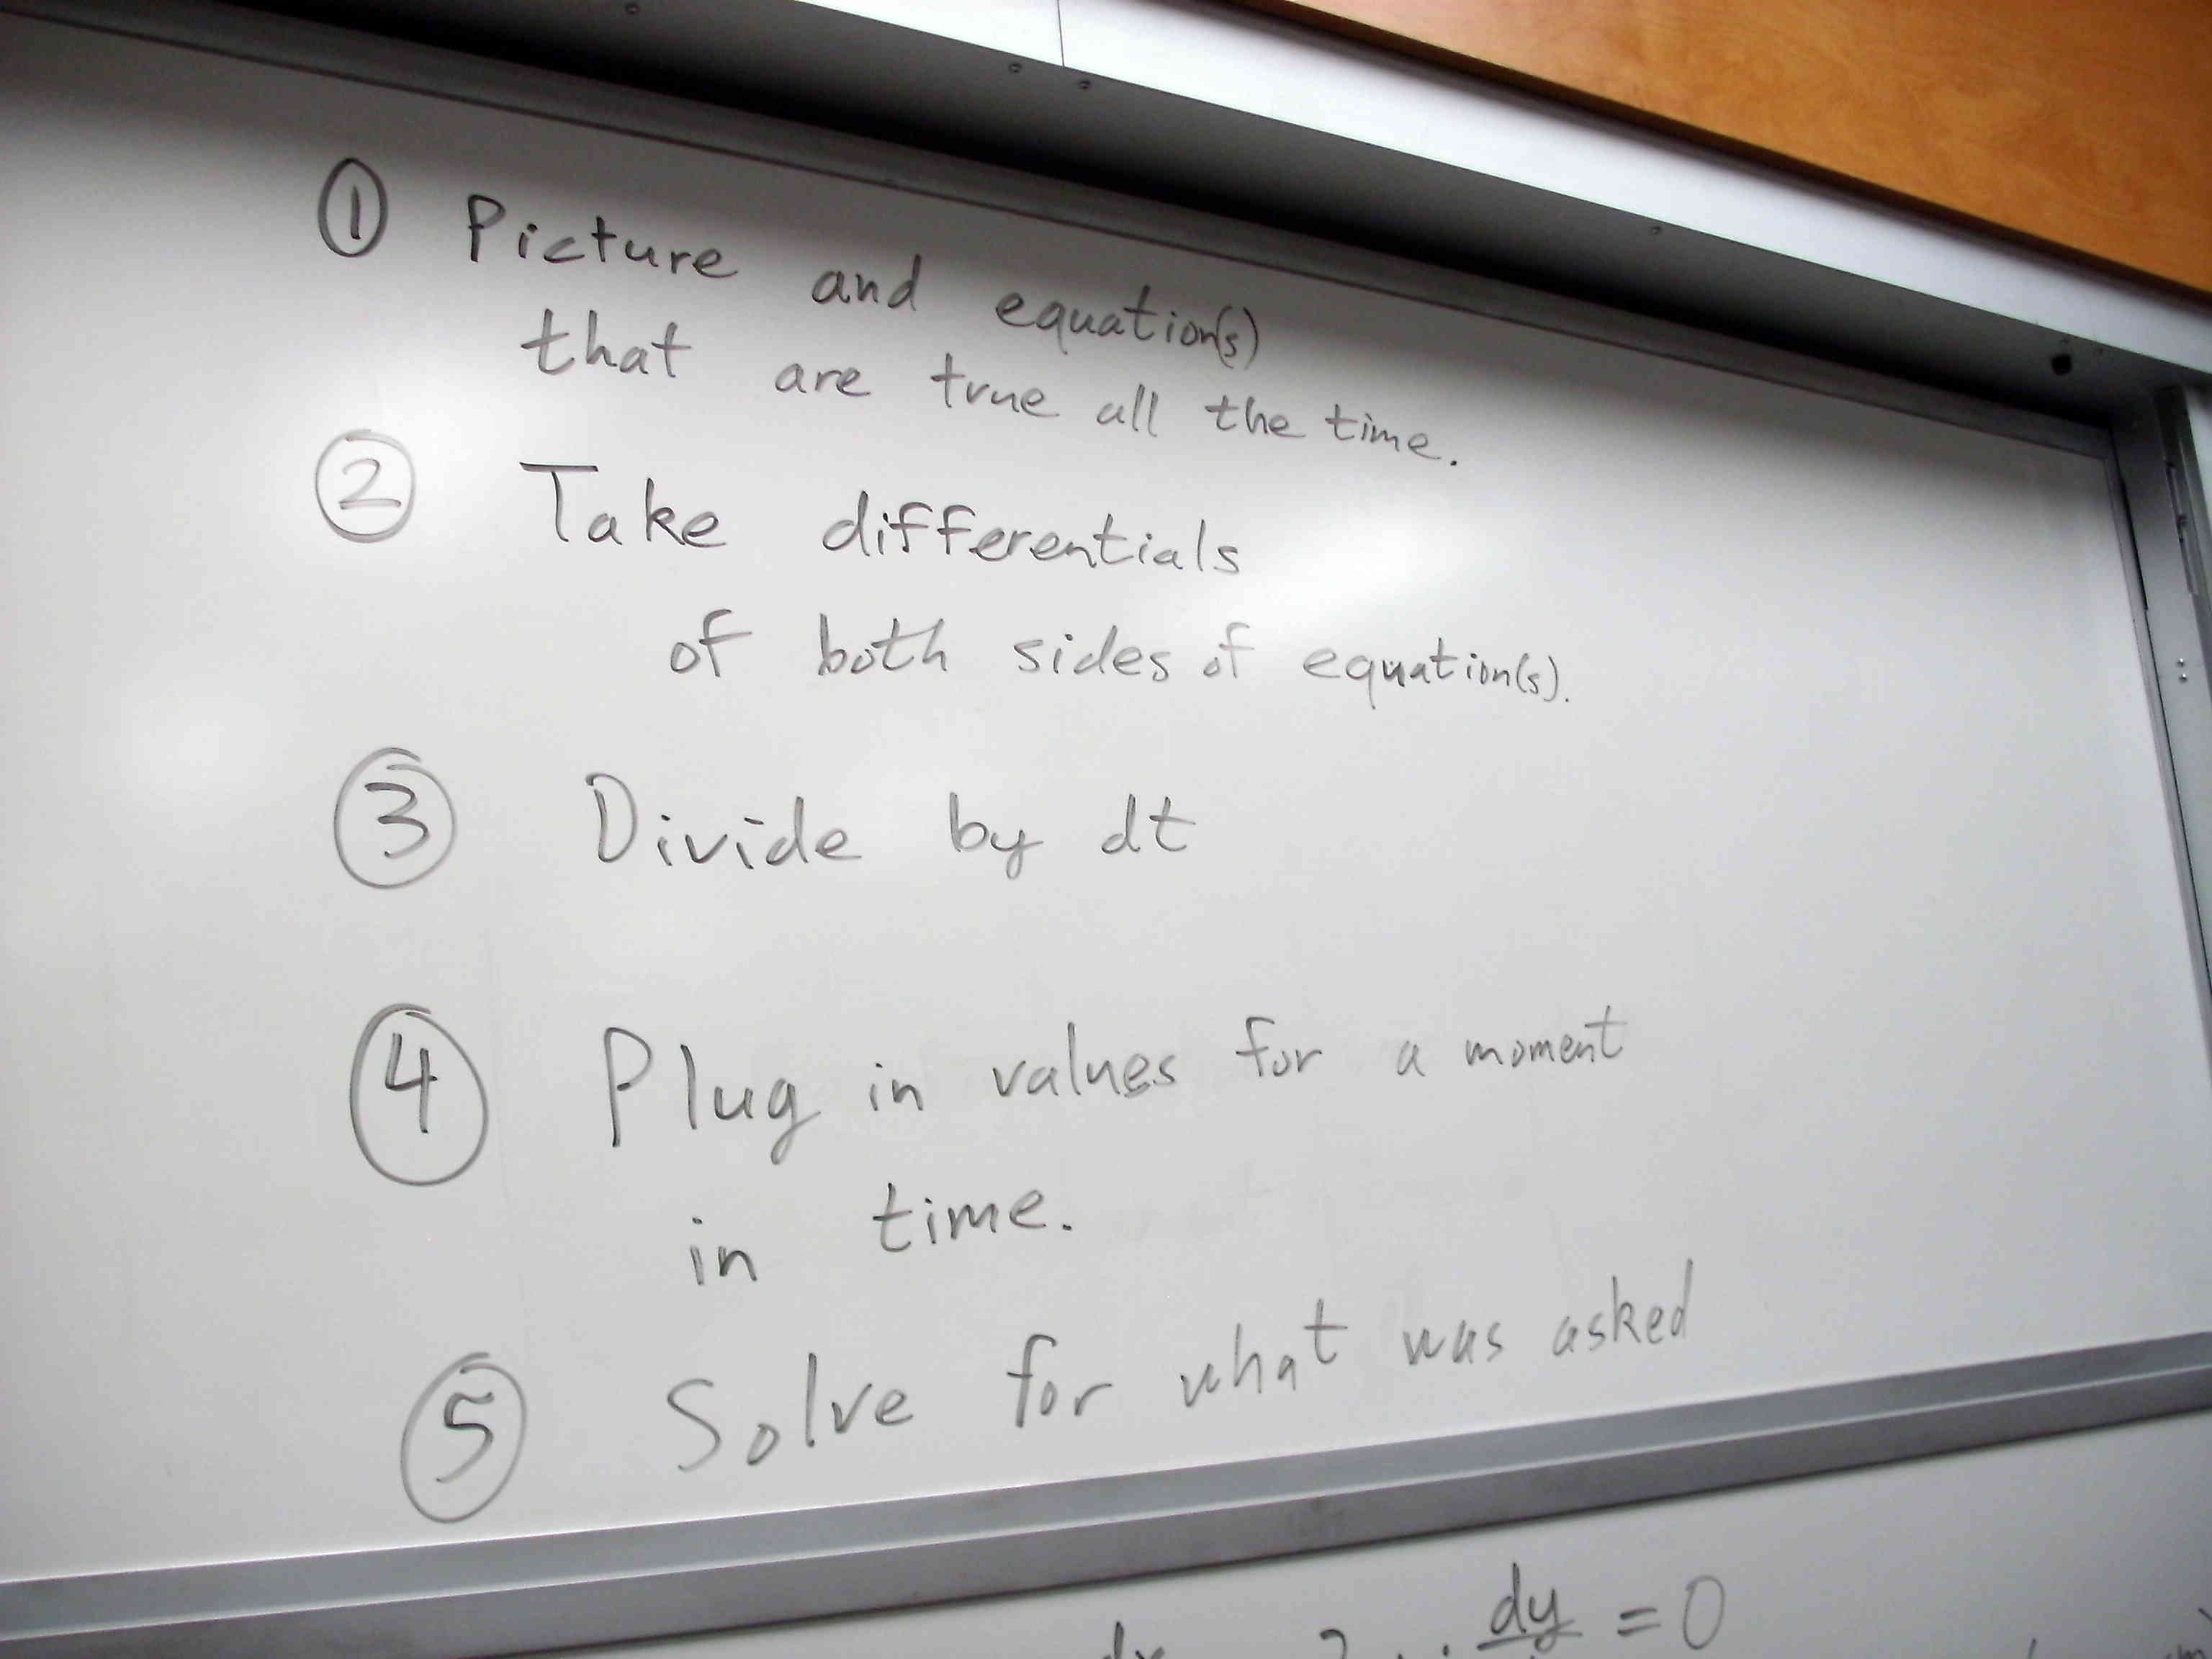 ① Picture and equation(s)
that are true all the time.
② Take differentials
of both sides of equation(s).
③ Divide by dt
④ Plug in values for a moment
in time.
⑤ Solve for what was asked
dy = 0